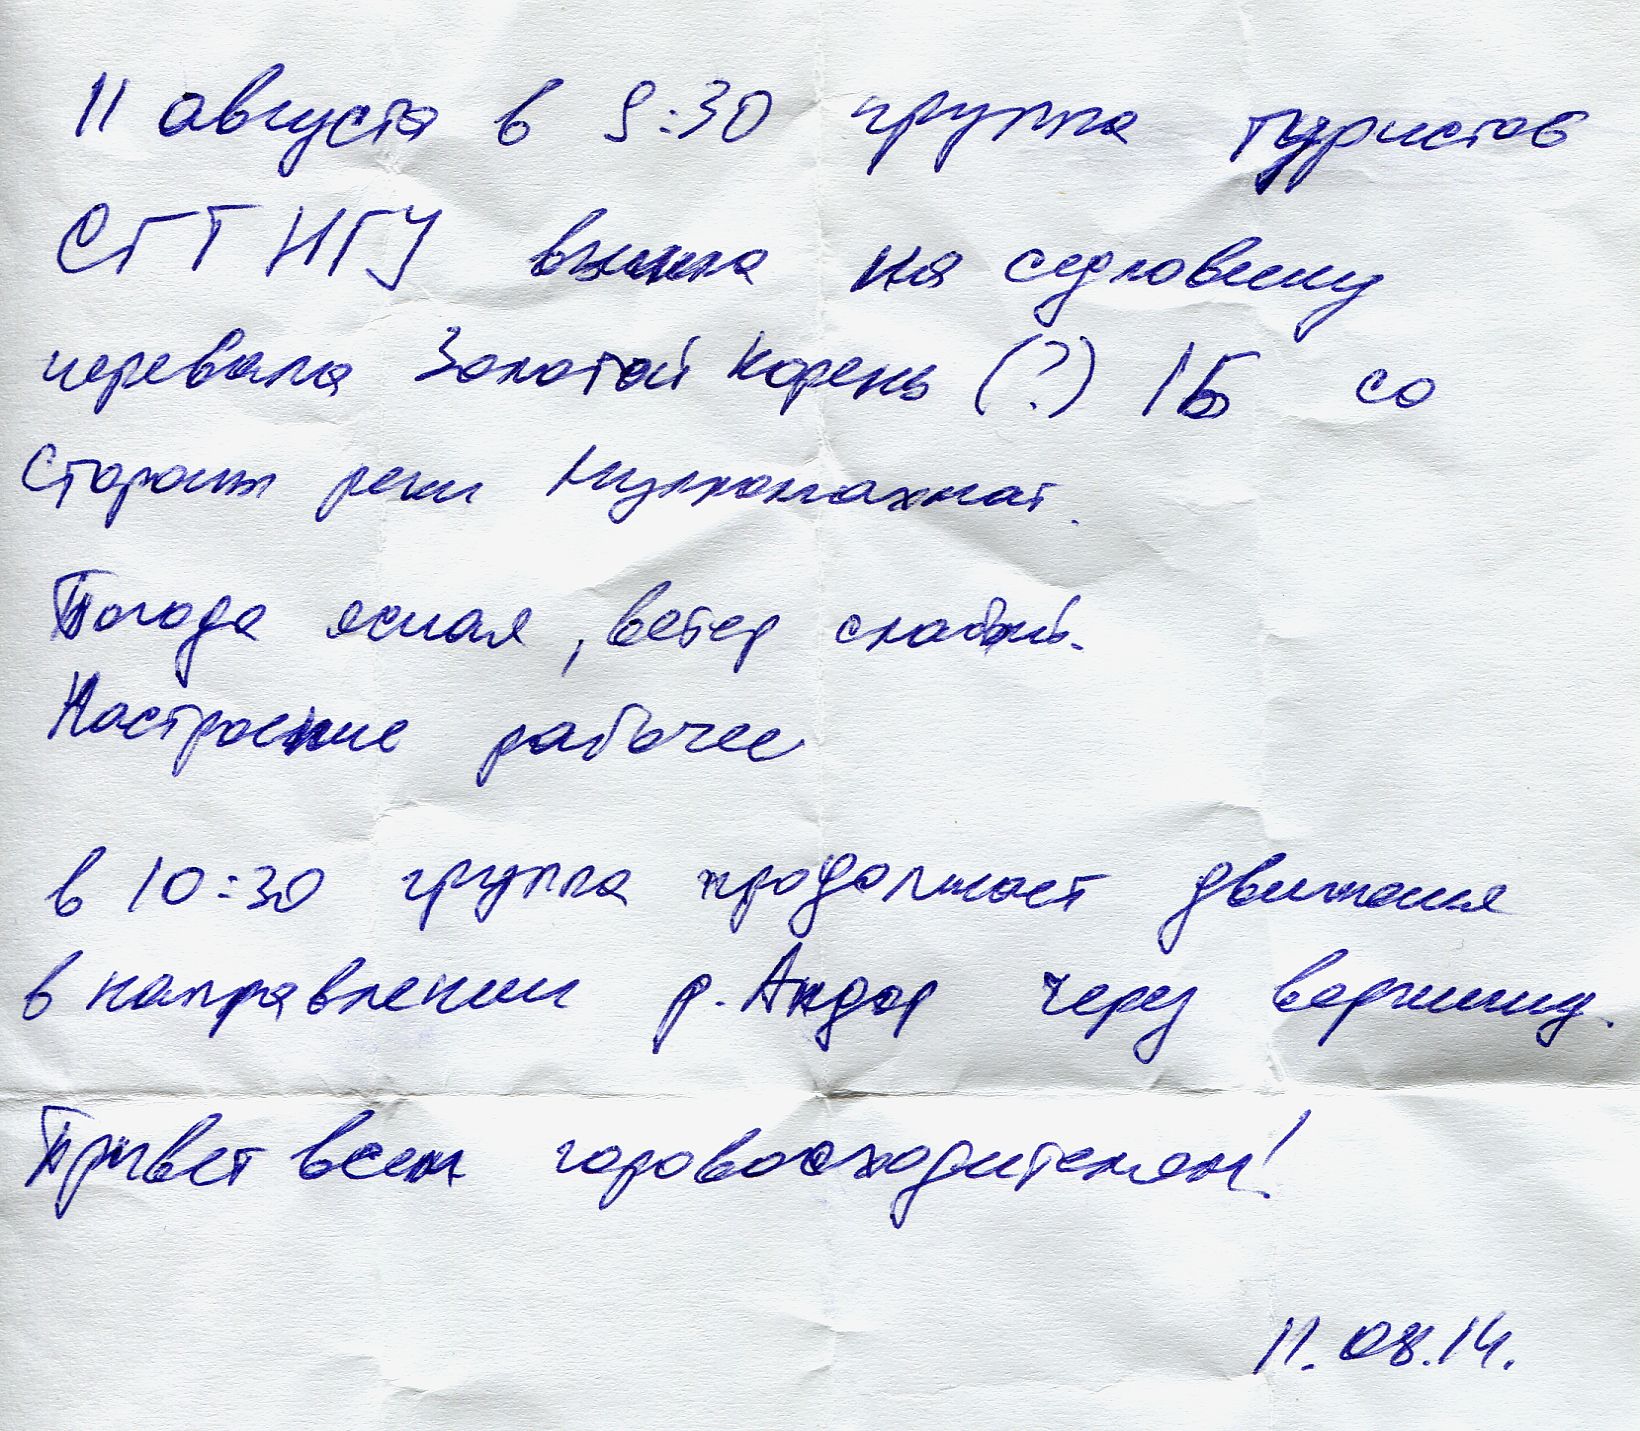 11 августа в 9:30 группа туристов
СГТ НГУ вышла на седловину
перевала Золотой Корень (?) 1Б со
стороны реки
Погода ясная, ветер слабый.
Настроение рабочее
в 10:30 группа продолжает движение
в направлении р. Андор через вершину.
Привет всем горовосходителям!
11.08.14.